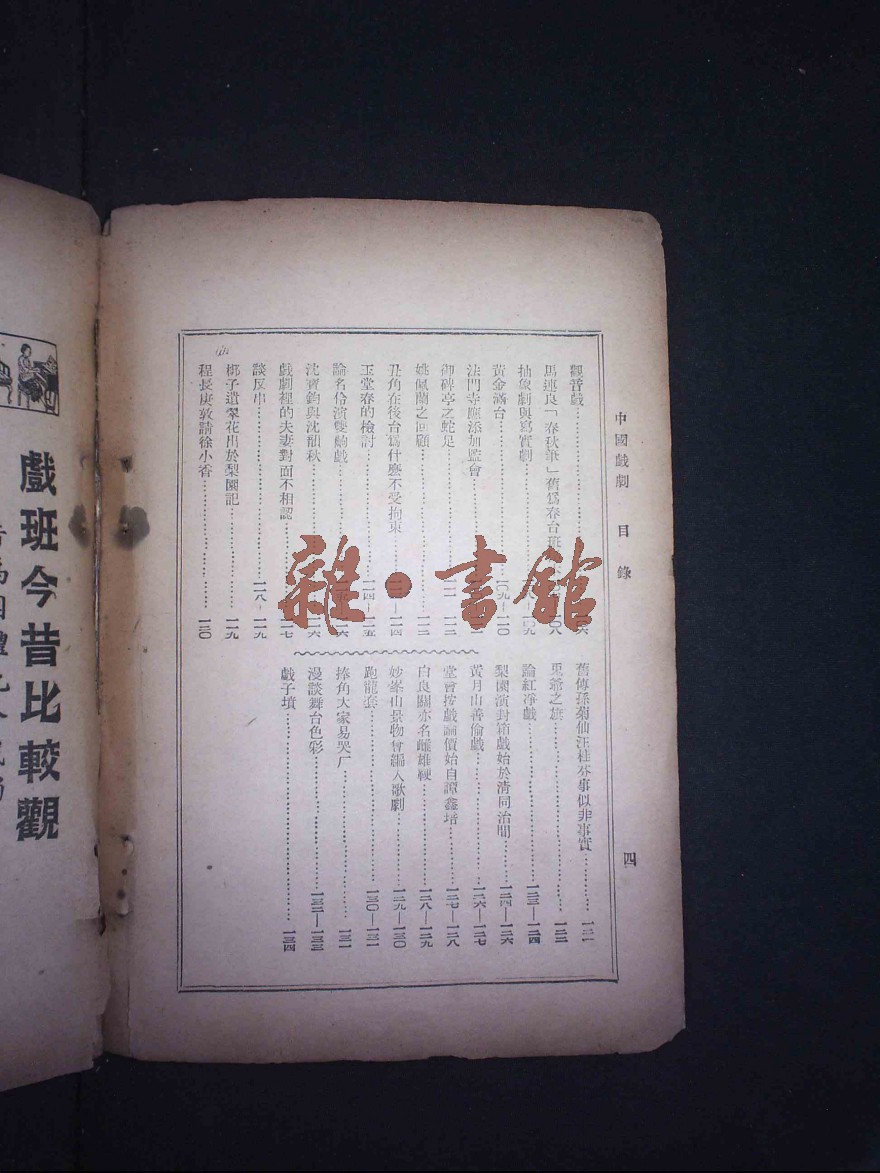 中國戲劇 目錄 四
觀音戲…………一〇六
馬連良「春秋筆」舊爲春台班…〇八
抽象劇與寫實劇…………一〇九
黃金滿台…………一〇九—一一〇
法門寺應添加監會…………
御碑亭之蛇足…………一一二
姚佩蘭之回顧…………一一三
丑角在後台爲什麼不受拘束…………一一四
玉堂春的檢討…………一一四—一一五
論名伶演雙齣戲…………一一六
沈寶鈞與沈韻秋…………一一六
戲劇裡的夫妻對面不相認…………一一七
談反串…………一一八—一一九
梆子遺翠花出於梨園記…………一一九
程長庚敦請徐小香…………一二〇
舊傳孫菊仙汪桂芬事似非事實…………一二一
兎爺之旗…………一二二
論紅凈戲…………一二三—一二四
梨園演封箱戲始於淸同治間…………一二四—一二六
黃月山善偷戲…………一二六—一二七
堂會按戲論價始自譚鑫培…………一二七—一二八
白良關亦名雌雄鞭…………一二八—一二九
妙峯山景物會編入歌劇…………一二九—一三〇
跑龍套…………一三〇—一三一
捧角大家易哭厂…………一三一
漫談舞台色彩…………一三二—一三三
戲子墳…………一三四
雜·書館
戲班今昔比較觀